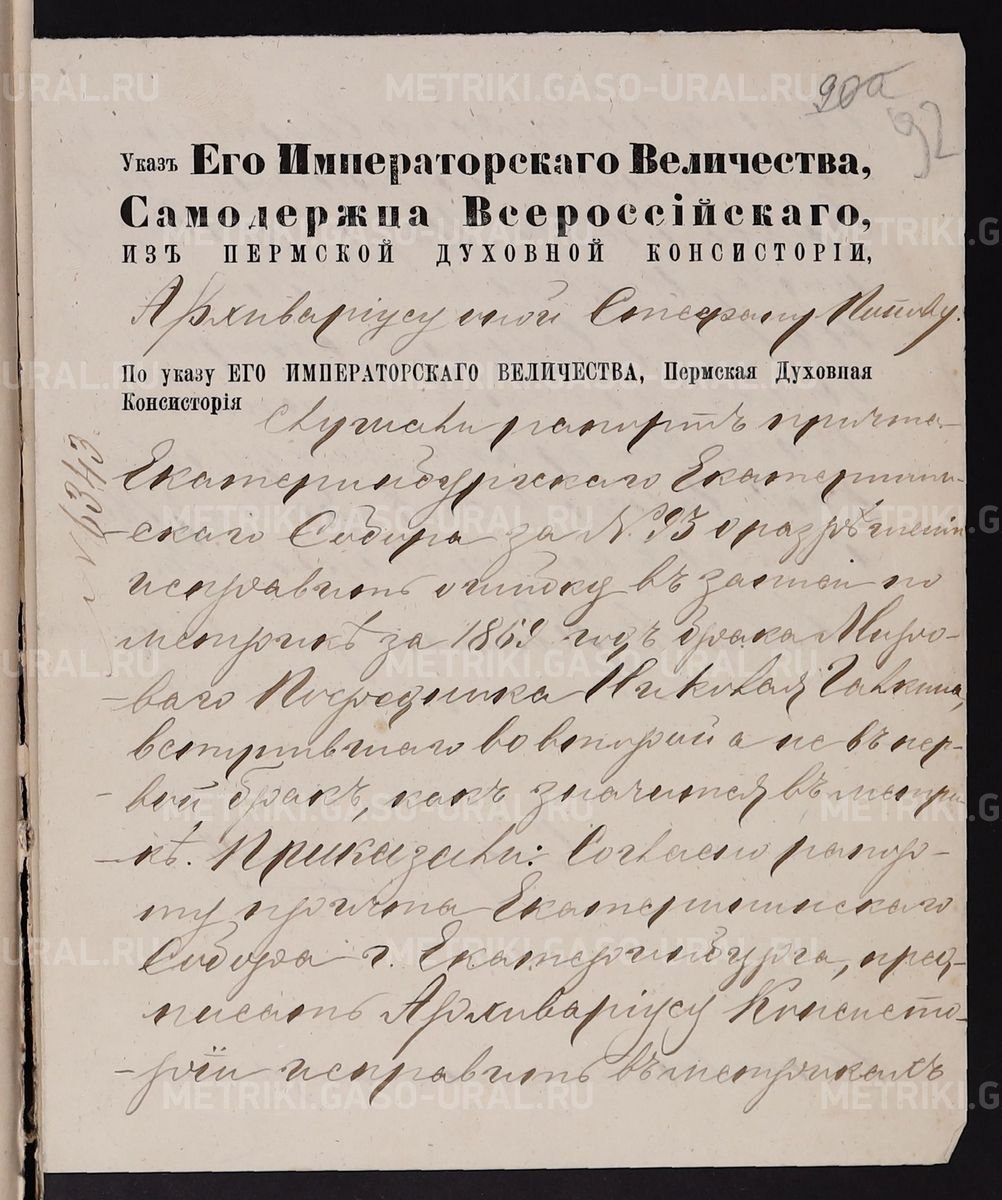 90а
92
Указъ Его Императорскаго Величества,
Самодержца Всероссійскаго,
ИЗЪ ПЕРМСКОЙ ДУХОВНОЙ КОНСИСТОРІИ,
Архиваріусу оной Стефану Попову.
По указу ЕГО ИМПЕРАТОРСКАГО ВЕЛИЧЕСТВА, Пермская Духовная
Консисторія
Слушали рапортъ причта
Екатеринбургскаго Екатеринин-
скаго Собора за №93 о разрѣшеніи
исправить ошибку въ записи по
метрикѣ за 1869 годъ брака Миро-
ваго Посредника Николая Галкина,
вступившаго во второй а не въ пер-
вой бракъ, какъ значится въ метри-
кѣ. Приказали: Согласно рапор-
ту причта Екатерининскаго
Собора г. Екатеринбурга, пред-
писать Архиваріусу Консисто-
ріи исправить въ метрикахъ
№9343
METRIKI.GASO-URAL.RU